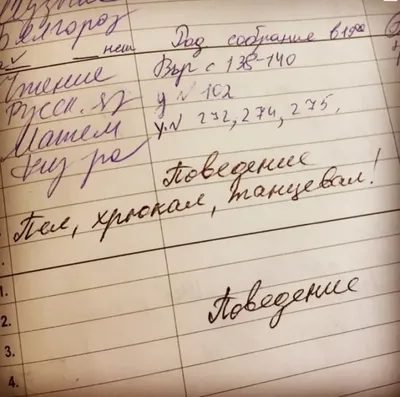 Белгород
Род собрание в 19⁰⁰
Чтение Выр с 138-140
Русск. яз у № 102
Матем у.№ 272, 274, 275.
Физ ра
Поведение
Пел, хрюкал, танцевал!
1.
Поведение
2.
3.
4.